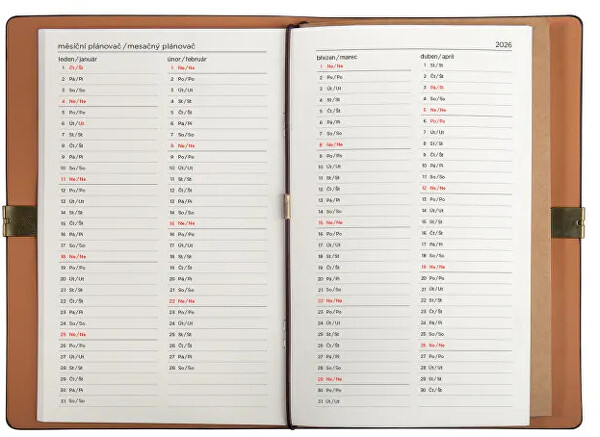 měsíční plánovač / mesačný plánovač
leden / január
1 Čt / Št
2 Pá / Pi
3 So / So
4 Ne / Ne
5 Po / Po
6 Út / Ut
7 St / St
8 Čt / Št
9 Pá / Pi
10 So / So
11 Ne / Ne
12 Po / Po
13 Út / Ut
14 St / St
15 Čt / Št
16 Pá / Pi
17 So / So
18 Ne / Ne
19 Po / Po
20 Út / Ut
21 St / St
22 Čt / Št
23 Pá / Pi
24 So / So
25 Ne / Ne
26 Po / Po
27 Út / Ut
28 St / St
29 Čt / Št
30 Pá / Pi
31 So / So
únor / február
1 Ne / Ne
2 Po / Po
3 Út / Ut
4 St / St
5 Čt / Št
6 Pá / Pi
7 So / So
8 Ne / Ne
9 Po / Po
10 Út / Ut
11 St / St
12 Čt / Št
13 Pá / Pi
14 So / So
15 Ne / Ne
16 Po / Po
17 Út / Ut
18 St / St
19 Čt / Št
20 Pá / Pi
21 So / So
22 Ne / Ne
23 Po / Po
24 Út / Ut
25 St / St
26 Čt / Št
27 Pá / Pi
28 So / So
2026
březen / marec
1 Ne / Ne
2 Po / Po
3 Út / Ut
4 St / St
5 Čt / Št
6 Pá / Pi
7 So / So
8 Ne / Ne
9 Po / Po
10 Út / Ut
11 St / St
12 Čt / Št
13 Pá / Pi
14 So / So
15 Ne / Ne
16 Po / Po
17 Út / Ut
18 St / St
19 Čt / Št
20 Pá / Pi
21 So / So
22 Ne / Ne
23 Po / Po
24 Út / Ut
25 St / St
26 Čt / Št
27 Pá / Pi
28 So / So
29 Ne / Ne
30 Po / Po
31 Út / Ut
duben / apríl
1 St / St
2 Čt / Št
3 Pá / Pi
4 So / So
5 Ne / Ne
6 Po / Po
7 Út / Ut
8 St / St
9 Čt / Št
10 Pá / Pi
11 So / So
12 Ne / Ne
13 Po / Po
14 Út / Ut
15 St / St
16 Čt / Št
17 Pá / Pi
18 So / So
19 Ne / Ne
20 Po / Po
21 Út / Ut
22 St / St
23 Čt / Št
24 Pá / Pi
25 So / So
26 Ne / Ne
27 Po / Po
28 Út / Ut
29 St / St
30 Čt / Št